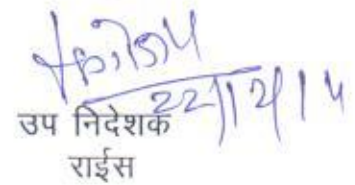 22/12/14
उप निदेशक
राईस